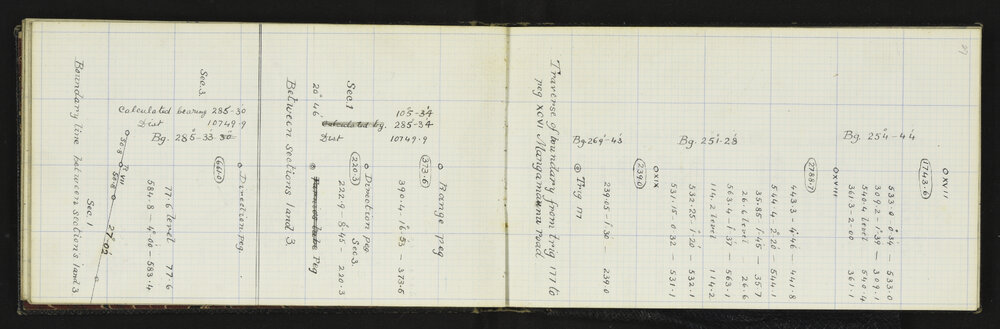 27
O XVII
(1743·6)
Bg. 254°-44'
533·0 0°·34' - 533·0
309·2 - 1°·39' - 309·1
540·4 level 540·4
361·3 - 2·00 361·1
O XVIII
(2788·7)
443·3 - 4°·46' - 441·8
544·4 - 2°·26' - 544·1
35·85 1°·45' - 35·7
26·6 level 26·6
563·4 - 1°·37' - 563·1
114·2 level 114·2
532·25 1°·20' - 532·1
531·15 0·32 - 531·1
Bg. 251°-28'
O XIX
(239·0)
239·05 - 1°·30' 239·0
Bg 269°-43'
Trig 177
Traverse of boundary from trig 177 to
peg XCVI Mangamāunu road
O Range peg
(373·6)
390·4 - 16°·53' - 373·6
O Direction peg
Sec 3.
(220·3)
222·9 - 8°·45' - 220·3
105°-34'
Calculated bg. 285-34
Dist 10749·9
Sec. 1
Peg
20° 46'
Between sections 1 and 3
O Direction peg.
(661·0)
77·6 level 77·6
584·8 - 4°·00' - 583·4
Sec. 3.
Calculated bearing 285-30
Dist 10749·9
Bg. 285°-33 30'
VII
27° 02'
Sec. 1
Boundary line between sections 1 and 3